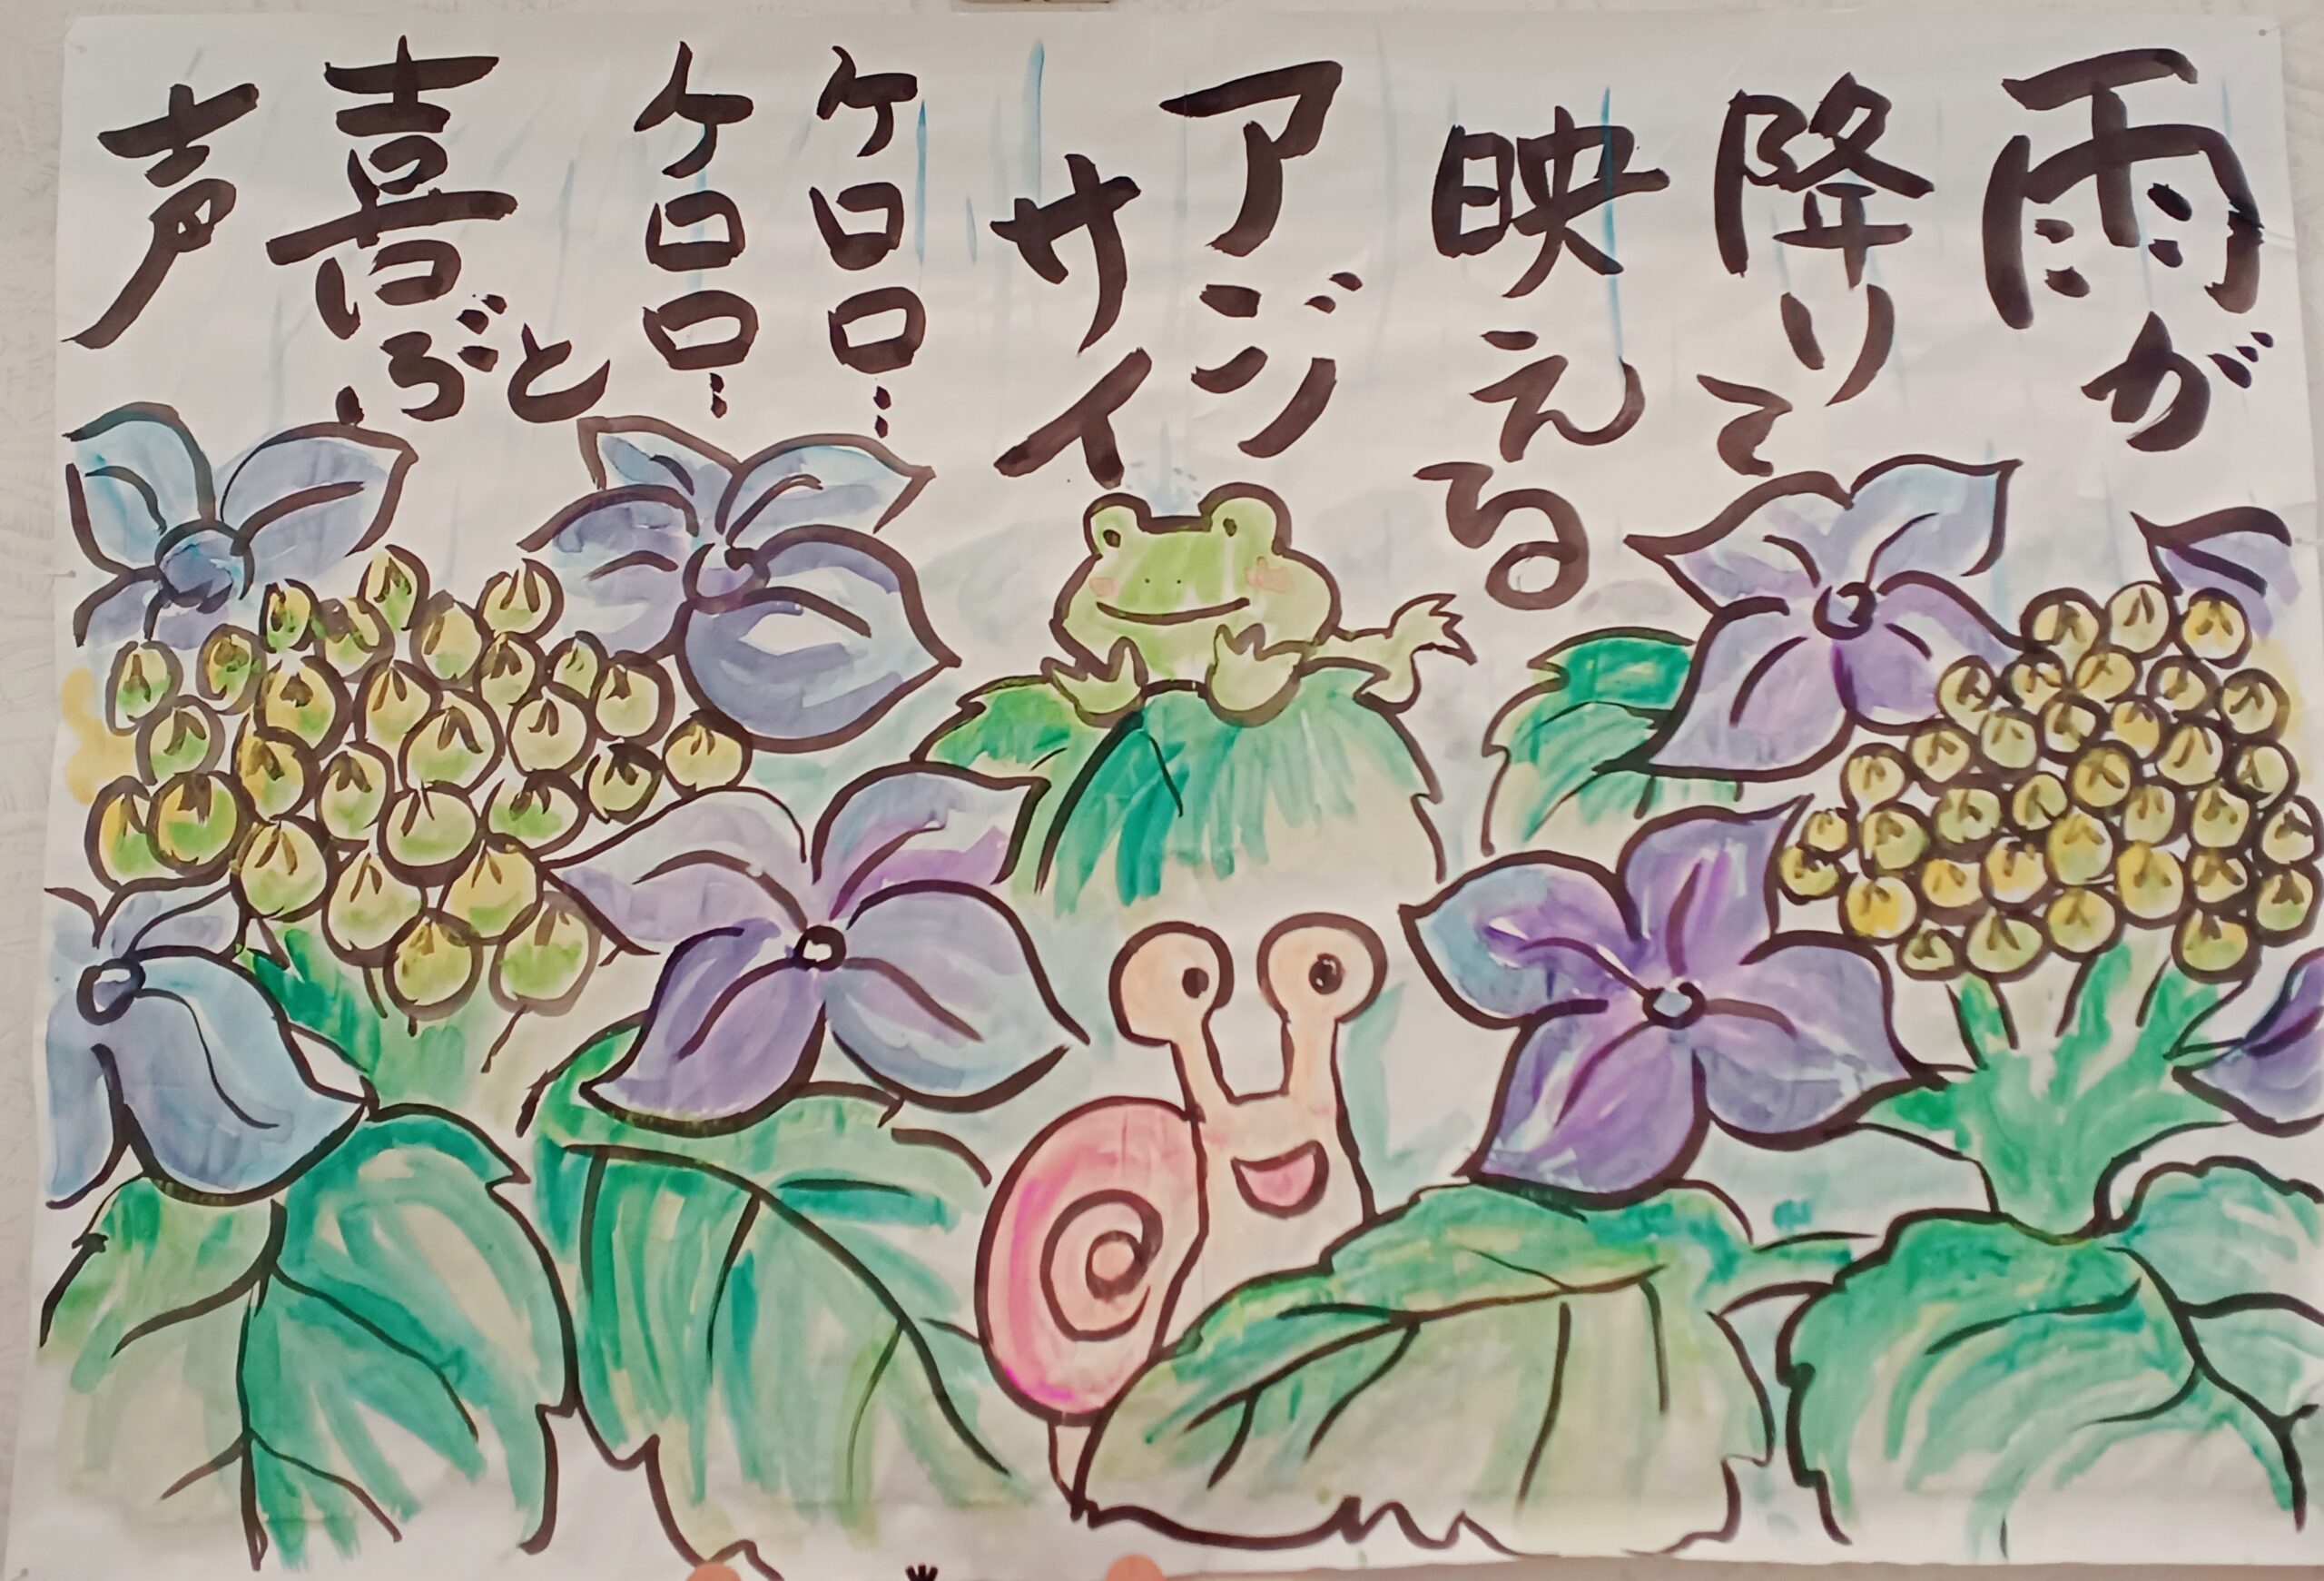 雨が
降りて
映える
アジ
サイ
ケロロ…
ケロロ…
と
喜ぶ
声